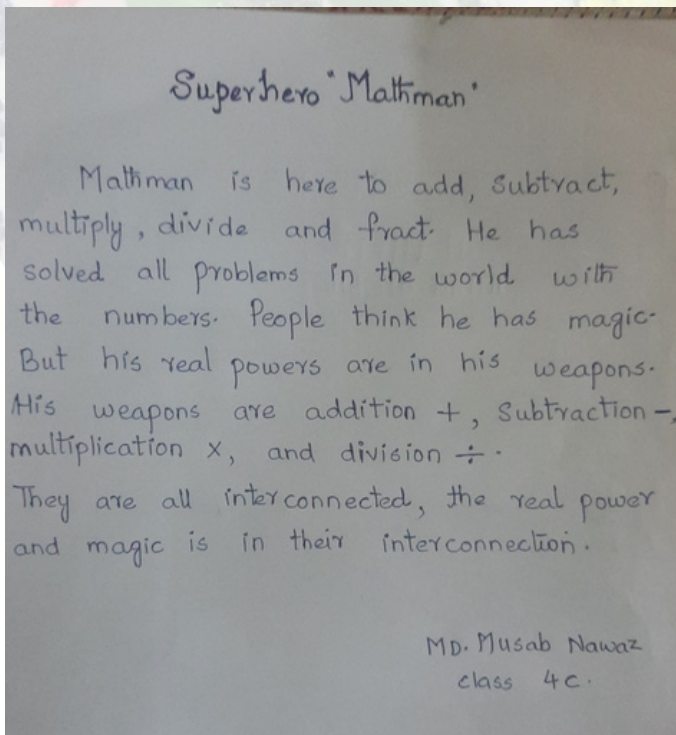 Superhero "Mathman"
Mathman is here to add, subtract,
multiply, divide and fract. He has
solved all problems in the world with
the numbers. People think he has magic.
But his real powers are in his weapons.
His weapons are addition +, Subtraction -,
multiplication x, and division ÷.
They are all interconnected, the real power
and magic is in their interconnection.
MD. Musab Nawaz
class 4C.